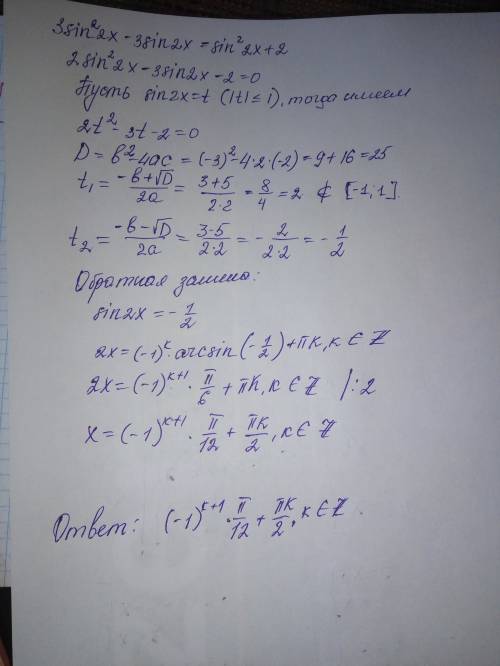 3sin²2x - 3sin2x = sin²2x + 2
2sin²2x - 3sin2x - 2 = 0
Пусть sin2x = t (|t| ≤ 1), тогда имеем
2t² - 3t - 2 = 0
D = b² - 4ac = (-3)² - 4·2·(-2) = 9 + 16 = 25
t₁ = (-b+√D)/2a = (3+5)/(2·2) = 8/4 = 2 ⊄ [-1;1].
t₂ = (-b-√D)/2a = (3-5)/(2·2) = -2/(2·2) = -1/2
Обратная замена:
sin2x = -1/2
2x = (-1)ᵏ · arcsin(-1/2) + πk, k ∈ Z
2x = (-1)ᵏ⁺¹ · π/6 + πk, k ∈ Z |:2
x = (-1)ᵏ⁺¹ · π/12 + πk/2, k ∈ Z
Ответ: (-1)ᵏ⁺¹ · π/12 + πk/2, k ∈ Z.